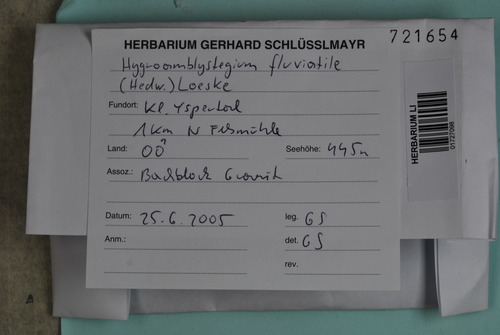 HERBARIUM GERHARD SCHLÜSSLMAYR
721654
Hygroamblystegium fluviatile
(Hedw.) Loeske
Fundort: Kl. Yspertal
1 km N Felsmühle
Land: OÖ Seehöhe: 445m
Assoz.: Bachblock Granit
Datum: 25.6.2005 leg. GS
Anm.: det. GS
rev.
HERBARIUM LI
01727098